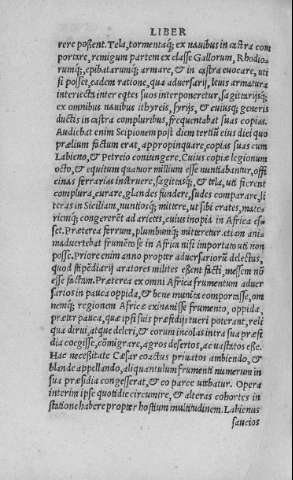 LIBER
rere possent. Tela, tormentaq; ex nauibus in castra com
portare, remigum partem ex classe Gallorum, Rhodio-
rumq;, epibatarumq; armare, & in castra euocare, uti
si posset, eadem ratione, qua aduersarij, leuis armatura
interiecta inter eqtes suos interponeretur, sagitarijsq;
ex omnibus nauibus ithyreis, syrijs, & cuiusq; generis
ductis in castra compluribus, frequentabat suas copias.
Audiebat enim Scipionem post diem tertiũ eius diei quo
prælium factum erat, appropinquare, copias suas cum
Labieno, & Petreio coniungere. Cuius copiæ legionum
octo, & equitum quatuor millium esse nuntiabantur, offi
cinas ferrarias instruere, sagittasq;, & tela, uti fierent
complura, curare, glandes fundere, sudes comparare, li
teras in Siciliam, nuntiosq; mittere, ut sibi crates, mate
riemq; congererẽt ad arietes, cuius inopia in Africa es
set. Præterea ferrum, plumbumq; mitteretur. etiam ani
maduertebat frumẽto se in Africa nisi importato uti non
posse. Priore enim anno propter aduersariorũ delectus,
quod stipẽdiarij aratores milites essent facti, messem nõ
esse factam. Præterea ex omni Africa frumentum aduer
sarios in pauca oppida, & bene munita comportasse, om
nemq; regionem Africæ exinanisse frumento, oppida
præter pauca, quæ ipsi suis præsidijs tueri poterant, reli
qua dirui, atque deleri, & eorum incolas intra sua præsi
dia coegisse, cõmigrare, agros desertos, ac uastatos esse.
Hac necessitate Cæsar coactus priuatos ambiendo, &
blande appellando, aliquantulum frumenti numerum in
sua præsidia congesserat, & eo parce utebatur. Opera
interim ipse quotidie circumire, & alteras cohortes in
statione habere propter hostium multitudinem. Labienus
saucios